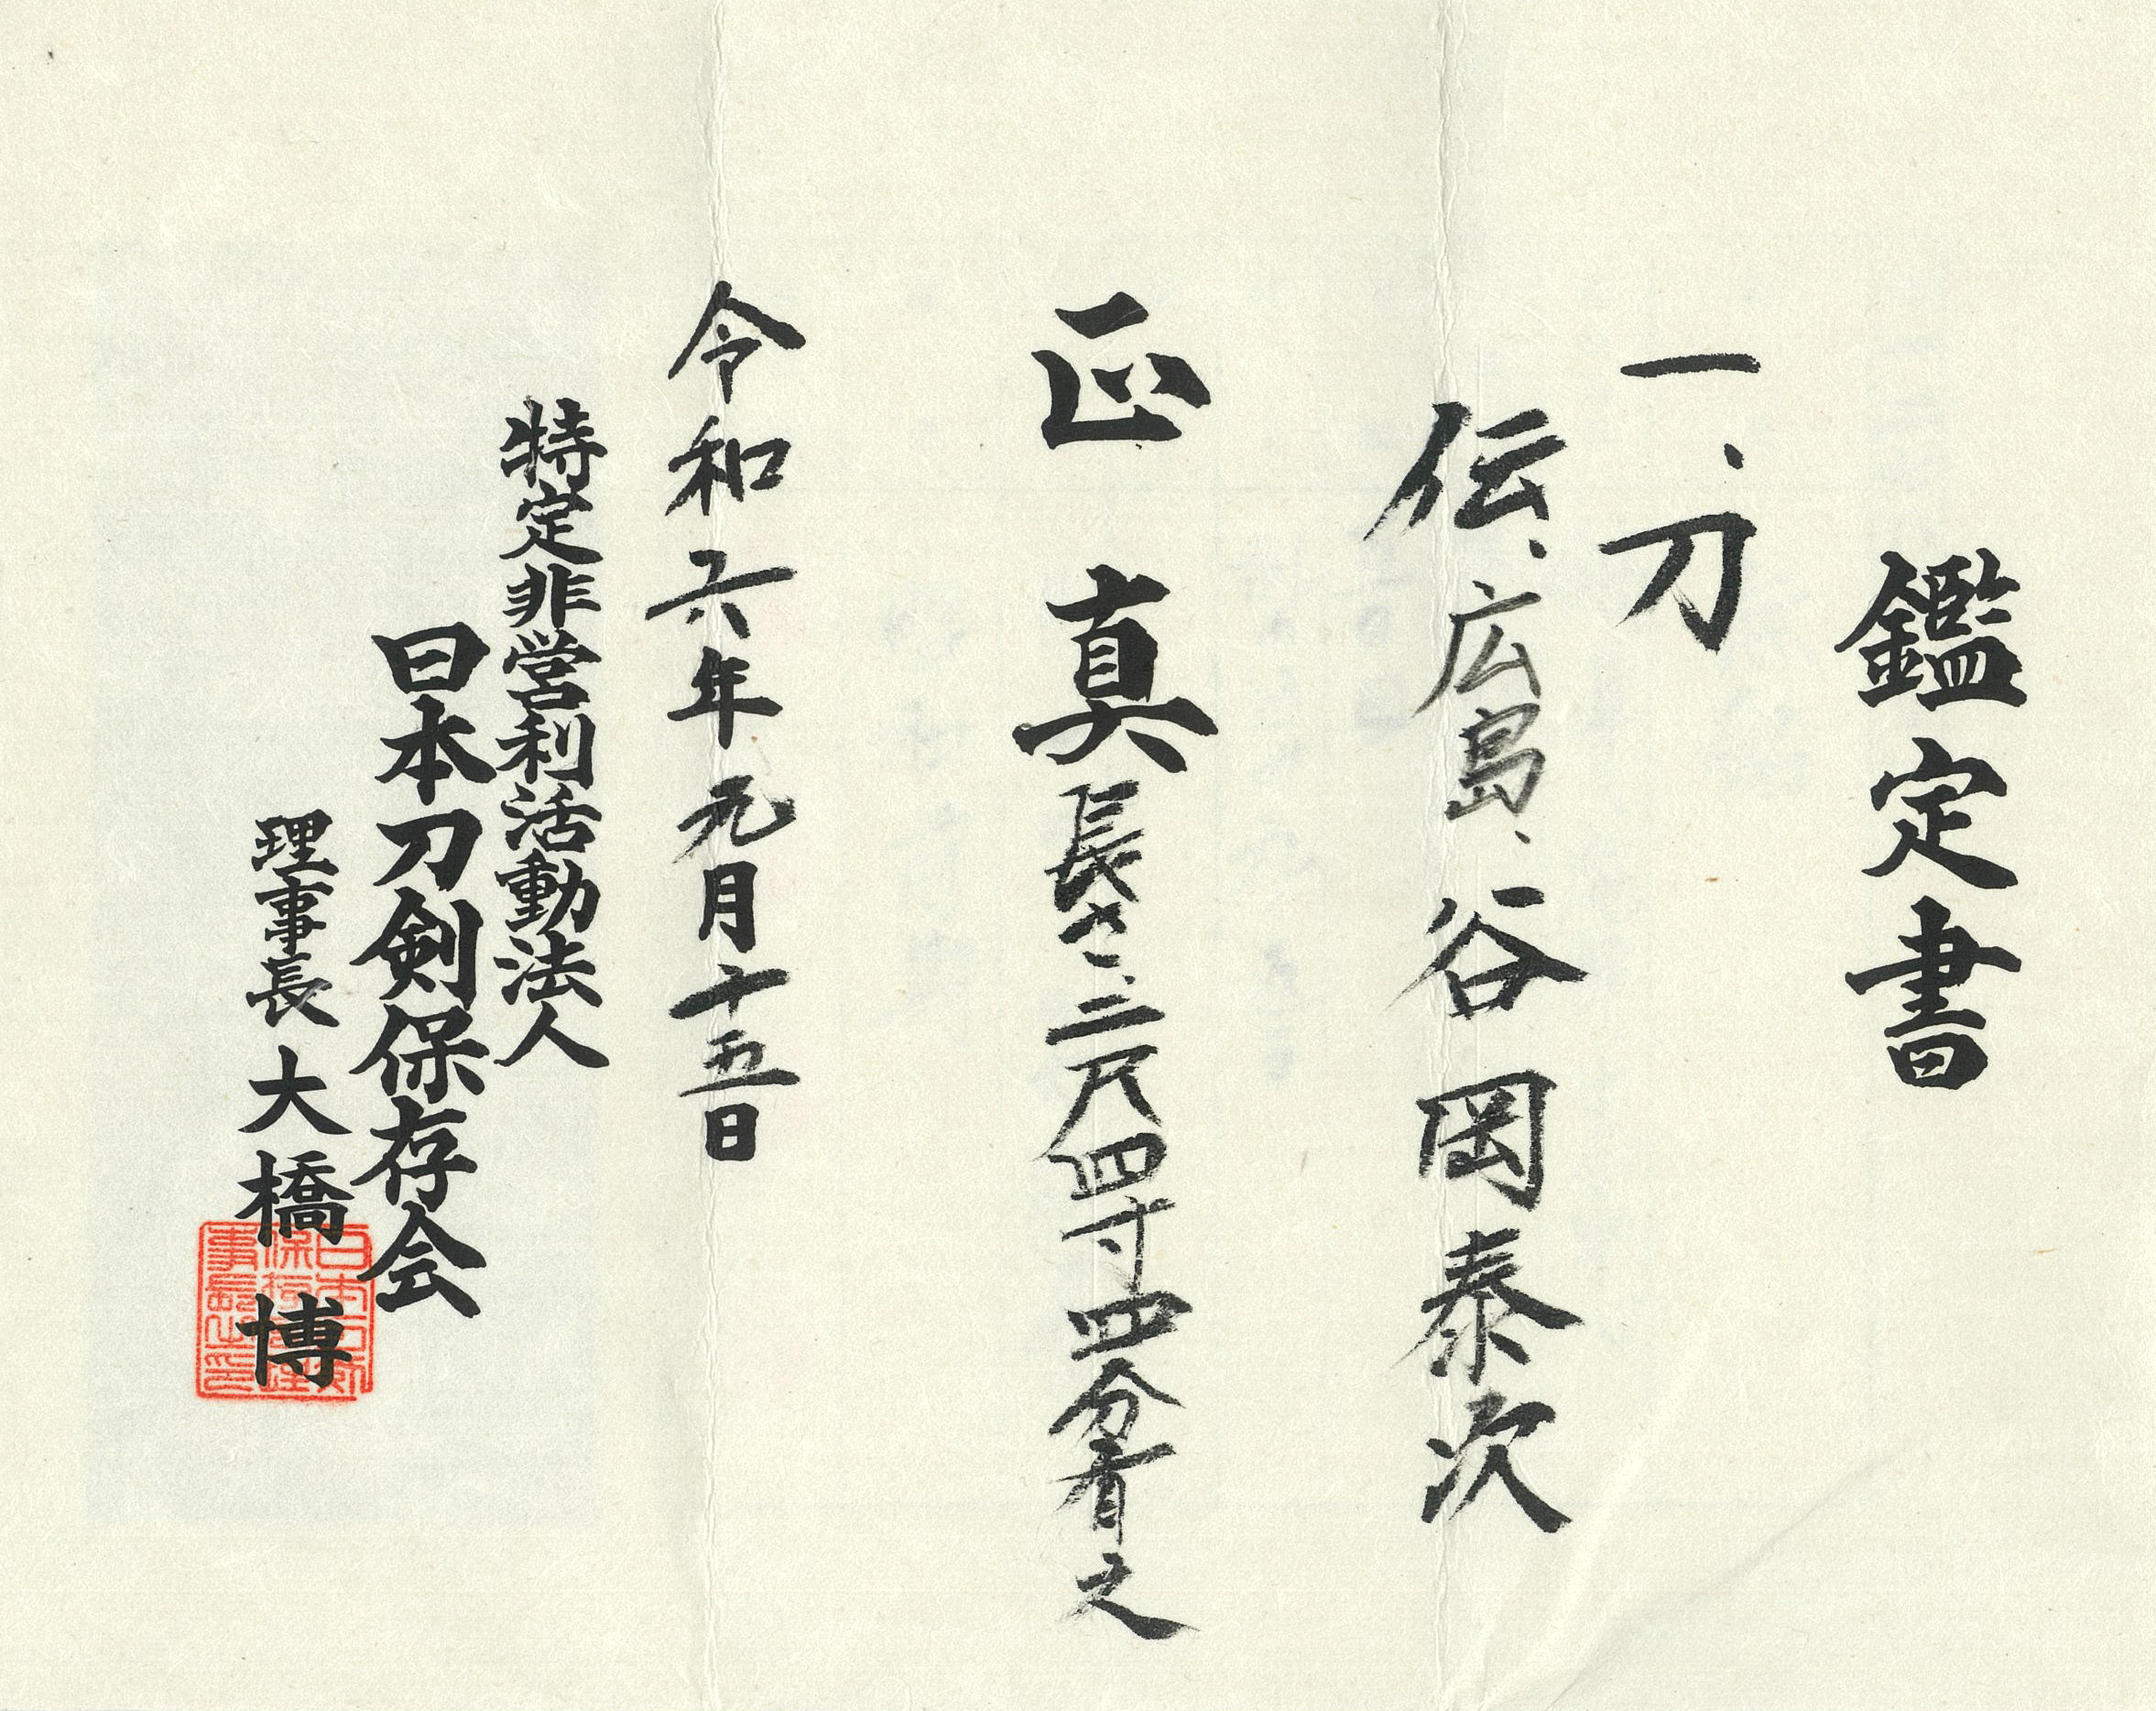 鑑定書
一、刀
伝、広島、谷岡泰次
正真 長さ、二尺四寸四分有之
令和六年元月十五日
特定非営利活動法人
日本刀剣保存会
理事長 大橋 博